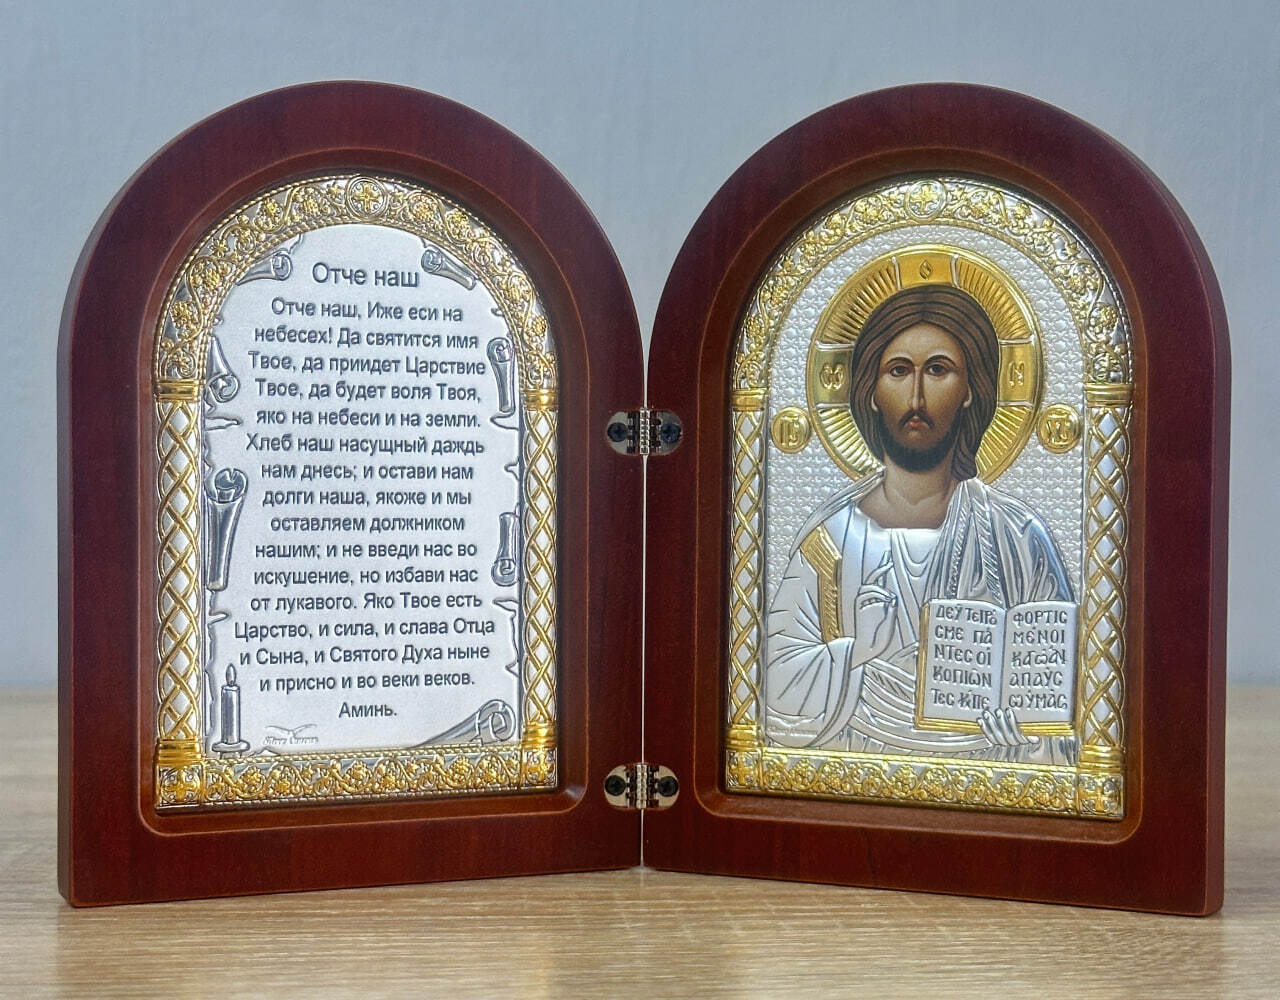 Отче наш
Отче наш, Иже еси на
небесех! Да святится имя
Твое, да приидет Царствие
Твое, да будет воля Твоя,
яко на небеси и на земли.
Хлеб наш насущный даждь
нам днесь; и остави нам
долги наша, якоже и мы
оставляем должником
нашим; и не введи нас во
искушение, но избави нас
от лукавого. Яко Твое есть
Царство, и сила, и слава Отца
и Сына, и Святого Духа ныне
и присно и во веки веков.
Аминь.
ΔΕΥ͂ΤΕ ΠΡΌ
ΣΜΕ ΠΆ
ΝΤΕΣ ΟΙ
ΚΟΠΙΩΝ
ΤΕΣ
ΦΟΡΤΙΣ
ΜΈΝΟΙ
ΚΑΓΩ͂
ΑΝΑΠΑΥΣ
Ω ΥΜΑΣ